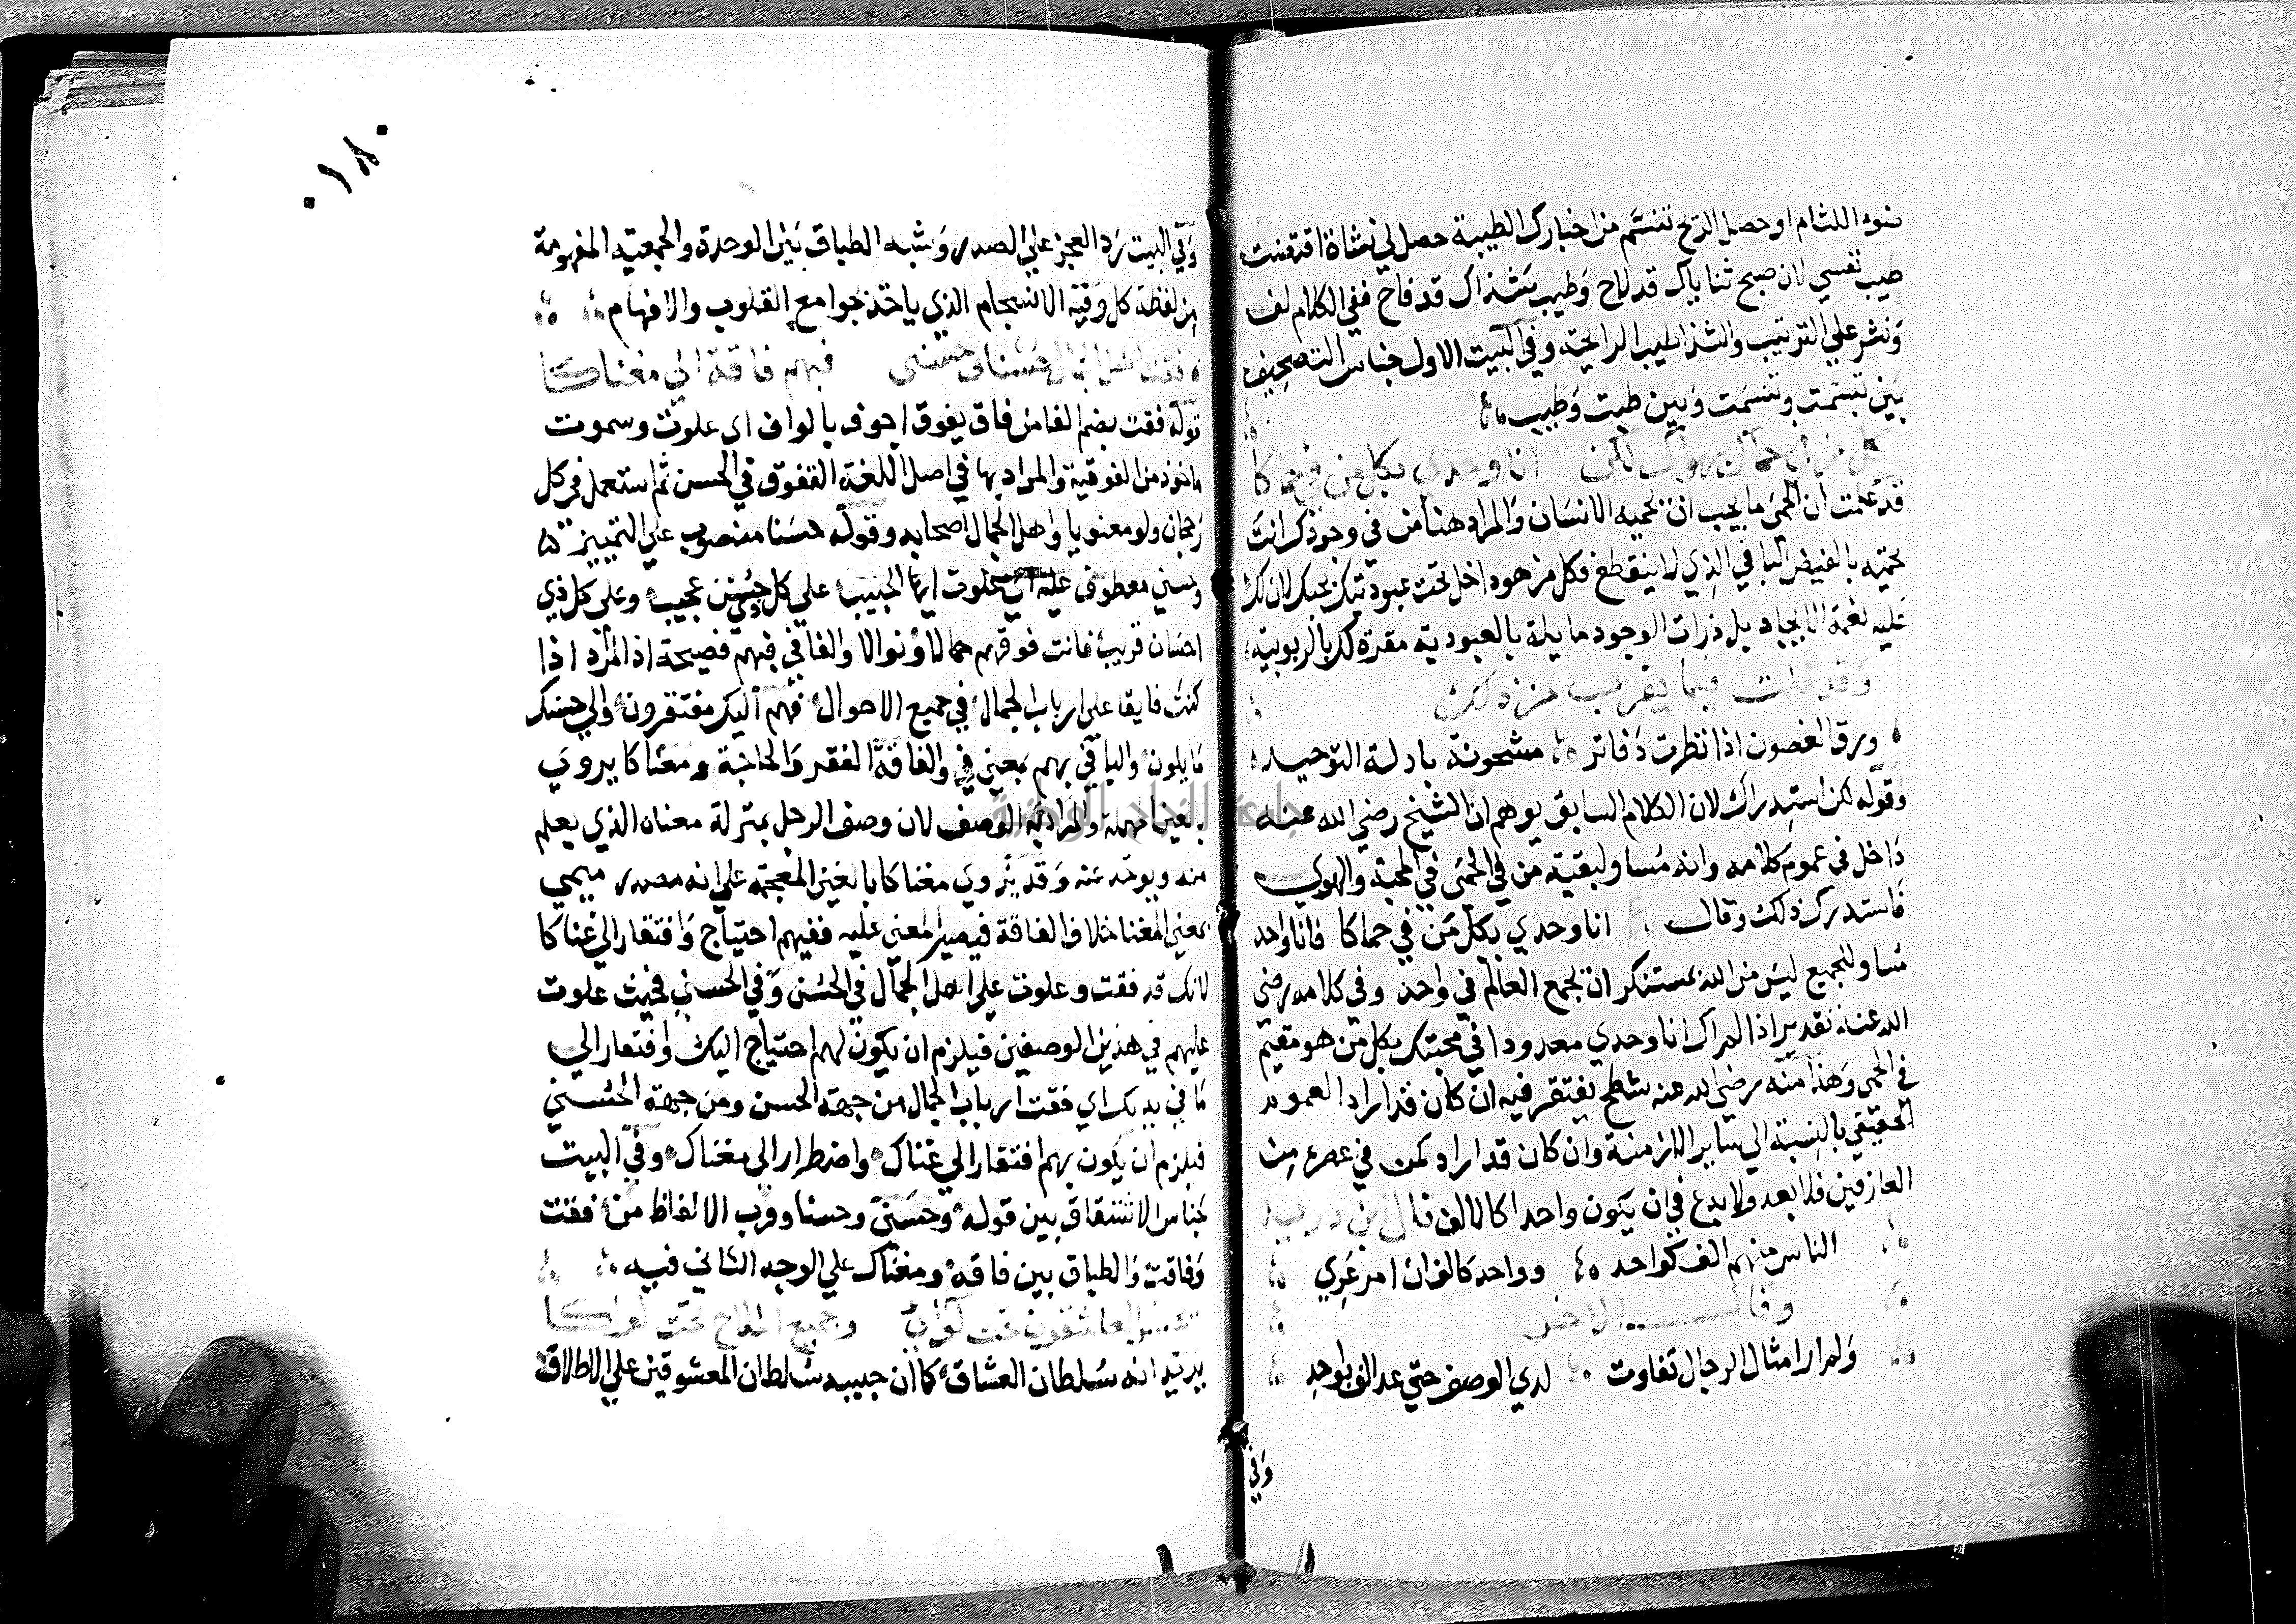 ضوء اللثام او حصل الريح تنسم من اخبارك الطيبة حصل لي نشاة اقتضت
طيب نفسي لان صبح ثناياك قد لاح وطيب شذاك قد فاح ففي الكلام لف
ونشر علي الترتيب والشذا طيب الرايحة وفي البيت الاول جناس التصحيف
بين تبسمت وتنسمت وبين طبت وطيب
كل من في حماك يهواك لكن انا وحدي بكل من في حماكا
قد علمت ان الحمي ما يجب ان يحميه الانسان والمراد هنا من في وجودك انت
تحميه بالفيض الباقي الذي لا ينقطع فكل من هو داخل تحت عبوديتك يحبك لان لك
عليه نعمة الايجاد بل ذرات الوجود مايلة بالعبودية مقرة لك بالربوبية
وقد قلت فيما يقرب من ذلك
ورق الغصون اذا نظرت دفاتر مشحونة بادلة التوحيد
وقوله لكن استدراك لان الكلام السابق يوهم ان الشيخ رضي الله عنه
داخل في عموم كلامه وانه مساو لبقية من في الحمي في المحبة والهوي
فاستدرك ذلك وقال انا وحدي بكل من في حماكا فانا واحد
مساو للجميع ليس من الله بمستنكر ان يجمع العالم في واحد وفي كلامه رضي
الله عنه تقدير اذ المراك انا وحدي معدودا في محبتك بكل من هو مقيم
في الحمي وهذا منه رضي الله عنه شطح يفتقر فيه ان كان قد اراد العموم
الحقيقي بالنسبة الي ساير الازمنة وان كان قد اراد لمن في عصره من
العارفين فلا بعد ولا بدع في ان يكون واحدا كالالف قال ابن دريد
الناس منهم الف كواحد وواحد كالالف ان امر عري
وقال الاخر
ولم ار امثال الرجال تفاوت لدي الوصف حتي عد الف بواحد
وفي
٠١٨٠
وفي البيت رد العجز علي الصدر وشبه الطباق بين الوحدة والجمعية المفهومة
من لفظة كل وفيه الانسجام الذي ياخذ بجوامع القلوب والافهام
فقت اهل الجمال حسنا وحسني فبهم فاقة الي معناكا
قوله فقت بضم الفا من فاق يفوق اجوف بالواو اي علوت وسموت
ماخوذ من الفوقية والمراد بها في اصل اللغة التفوق في الحسن ثم استعمل في كل
رجحان ولو معنويا واهل الجمال اصحابه وقوله حسنا منصوب علي التمييز
وحسني معطوف عليه اي علوت ايها الحبيب علي كل حسن عجيب وعلي كل ذي
احسان قريب فانت فوقهم جمالا ونوالا والفا في فبهم فصيحة اذ المراد اذا
كنت فايقا علي ارباب الجمال في جميع الاحوال فهم اليك مفتقرون والي حسنك
مايلون والبا في بهم بمعني في والفاقة الفقر والحاجة ومعناكا يروي
بعين مهملة والمراد به الوصف لان وصف الرجل بمنزلة معناه الذي يعلم
منه ويوخذ عنه وقد يروي مغناكا بالغين المعجمة علي انه مصدر ميمي
بمعني المغنا خلاف الفاقة فيصير المعني عليه ففيهم احتياج وافتقار الي غناكا
لانك قد فقت وعلوت علي اهل الجمال في الحسن وفي الحسني فحيث علوت
عليهم في هذين الوصفين فيلزم ان يكون لهم احتياج اليك وافتقار الي
ما في يديك اي فقت ارباب الجمال من جهة الحسن ومن جهة الحسني
فيلزم ان يكون بهم افتقار الي غناك واضطرار الي مغناك وفي البيت
جناس الاشتقاق بين قوله وحسني وحسنا وقرب الالفاظ من فقت
وفاقت والطباق بين فاقة ومغناك علي الوجه الثاني فيه
يحشر العاشقون تحت لوائي وجميع الملاح تحت لواكا
يريد انه سلطان العشاق كما ان حبيبه سلطان المعشوقين علي الاطلاق